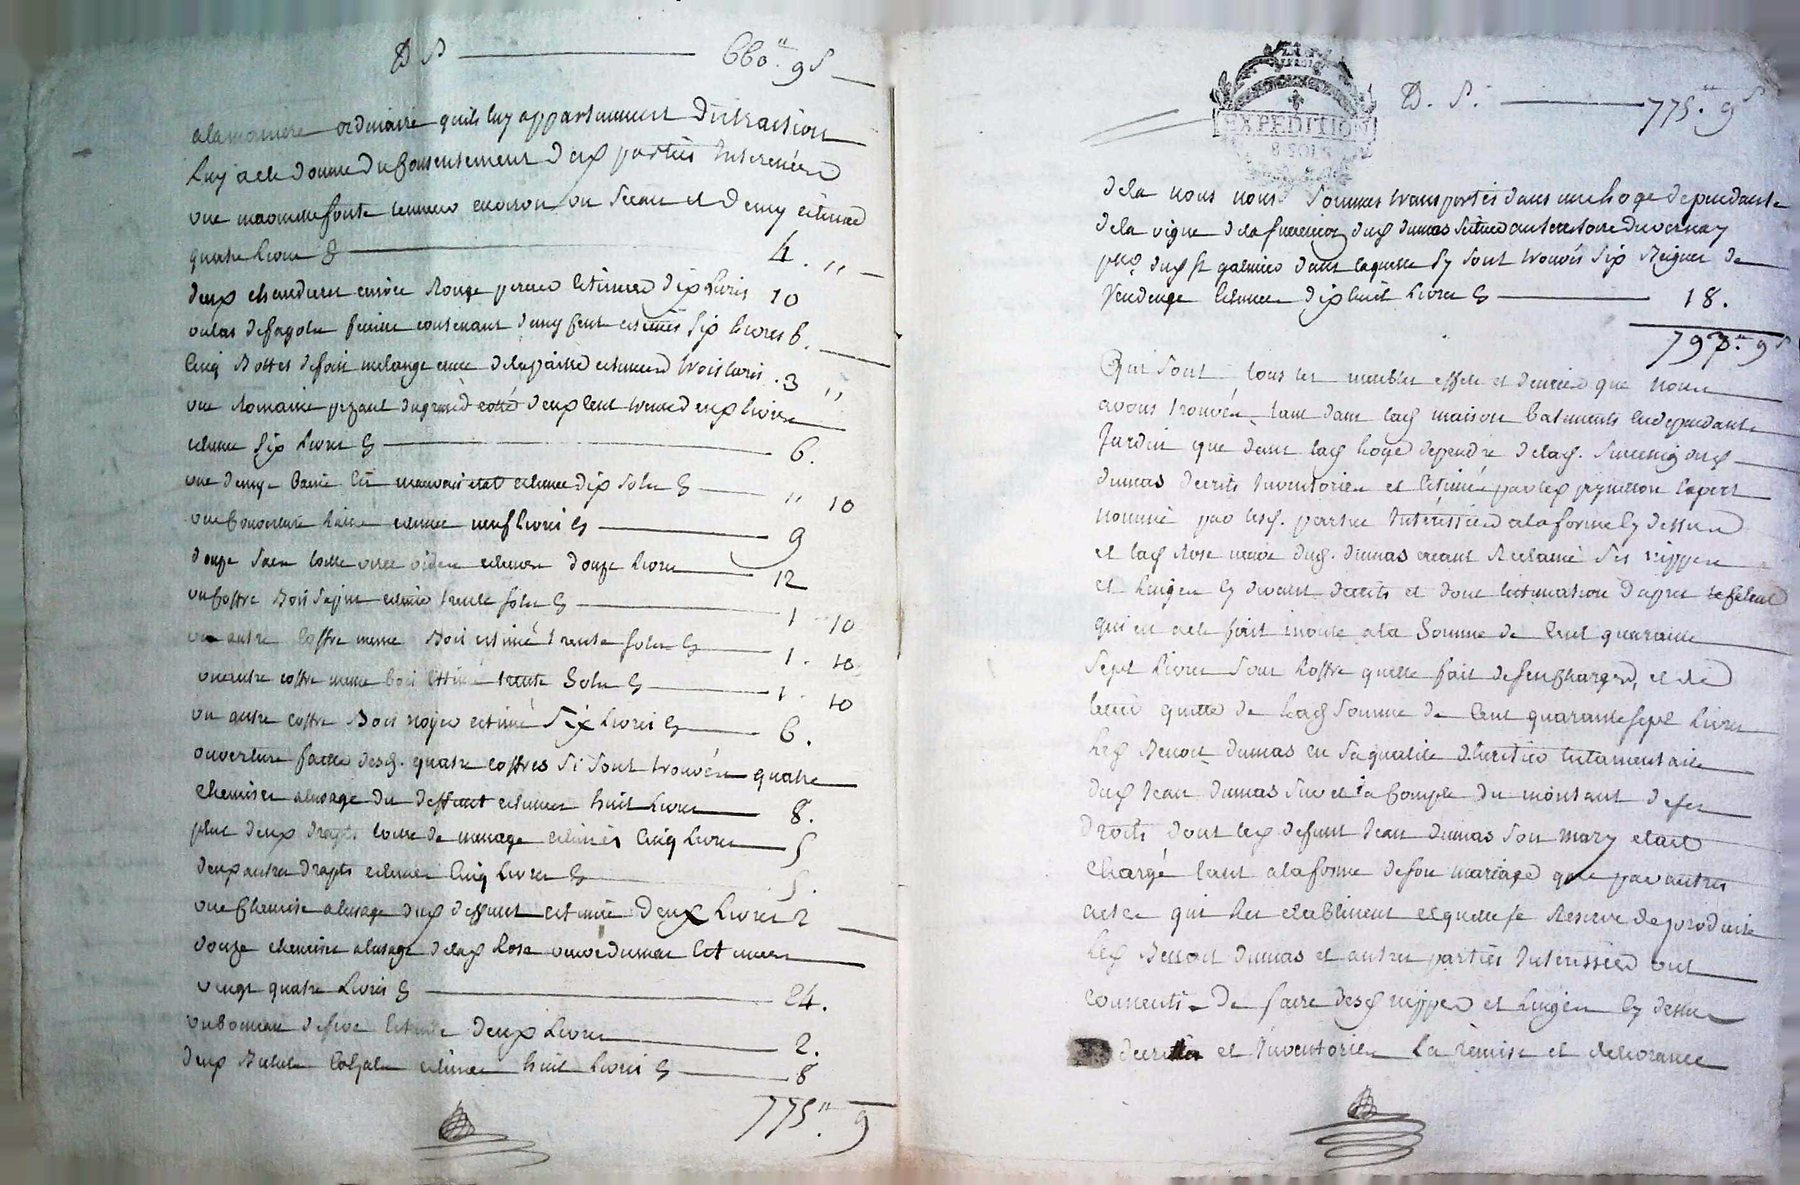 D. S. 660 ". 9 s
a la maniere ordinaire quils luy appartiennent distraction
luy a ete donné du Consentement des parties Interessées
une marmitte fonte tenante environ un seau et demy estimée
quatre livres cy 4 . "
deux chaudieres cuivre Rouge percées estimées dix livres 10
un tas de fagots contenant demy Cent estimés six livres 6.
Cinq Bottes de foin melange avec de la paille estimées trois livres . 3 "
une Romaine pezant du grand cotté deux Cent trente deux livres
estimée six livres cy 6.
une demye mauvais etat estimée dix sols cy " 10
une Couverture laine estimée neuf livres cy 9
douze sacs toille estimés douze livres 12
un Coffre Bois sapin estimé trente sols cy 1 10
un autre Coffre meme Bois estimé trente sols cy 1 . 10
un autre coffre meme bois estimé trente sols cy 1 . 10
un autre coffre Bois noyer estimé six livres cy 6.
ouverture faitte desd. quatre coffres si sont trouvées quatre
Chemises a lusage du deffunt estimées huit livres 8.
plus deux drapts toille de menage estimés Cinq livres 5
deux autres drapts estimés Cinq livres cy 5.
une Chemise a lusage dud deffunt estimée deux livres 2
douze chemises a lusage de lad Rose veuve dumas estimées
vingt quatre livres cy 24.
estimé deux livres 2.
deux estimés huit livres cy 8
775 ". 9
D. S. 775 ". 9 s
EXPEDITION
8 SOLS
de la nous nous sommes transportés dans une loge dependante
de la vigne de la succession dud dumas située au territoire du vernay
dud st galmier dans laquelle sy sont trouvés six de
vendange estimées dix huit livres cy 18.
793 ". 9 s
Qui sont tous les meubles effets et denrées que nous
avons trouvés tant dans lad maison Batiments en dependants
Jardin que dans lad loge dependte de lad. succession dud
dumas decrits Inventoriés et estimés par led Expert
nommé par lesd. parties Interessées a la forme cy dessus
et lad Rose veuve dud. dumas ayant Reclamé ses nippes
et linges cy devant decrits et dont lestimation dapres le Calcul
qui en a ete fait monte a la somme de Cent quarante
sept livres sous loffre quelle fait de sen Charger, et de
tenir quitte de lad somme de Cent quarante sept livres
led Benoit dumas en sa qualité dheritier testamentaire
dud Jean dumas sur et a Compte du montant de ses
droits dont led deffunt Jean dumas son mary etait
Chargé tant a la forme de son mariage que par autres
actes qui les etablissent et quelle se Reserve de produire
led Benoit dumas et autres parties Interessées ont
consenti de faire desd nippes et linges cy dessus
decrits et Inventoriés la remise et delivrance